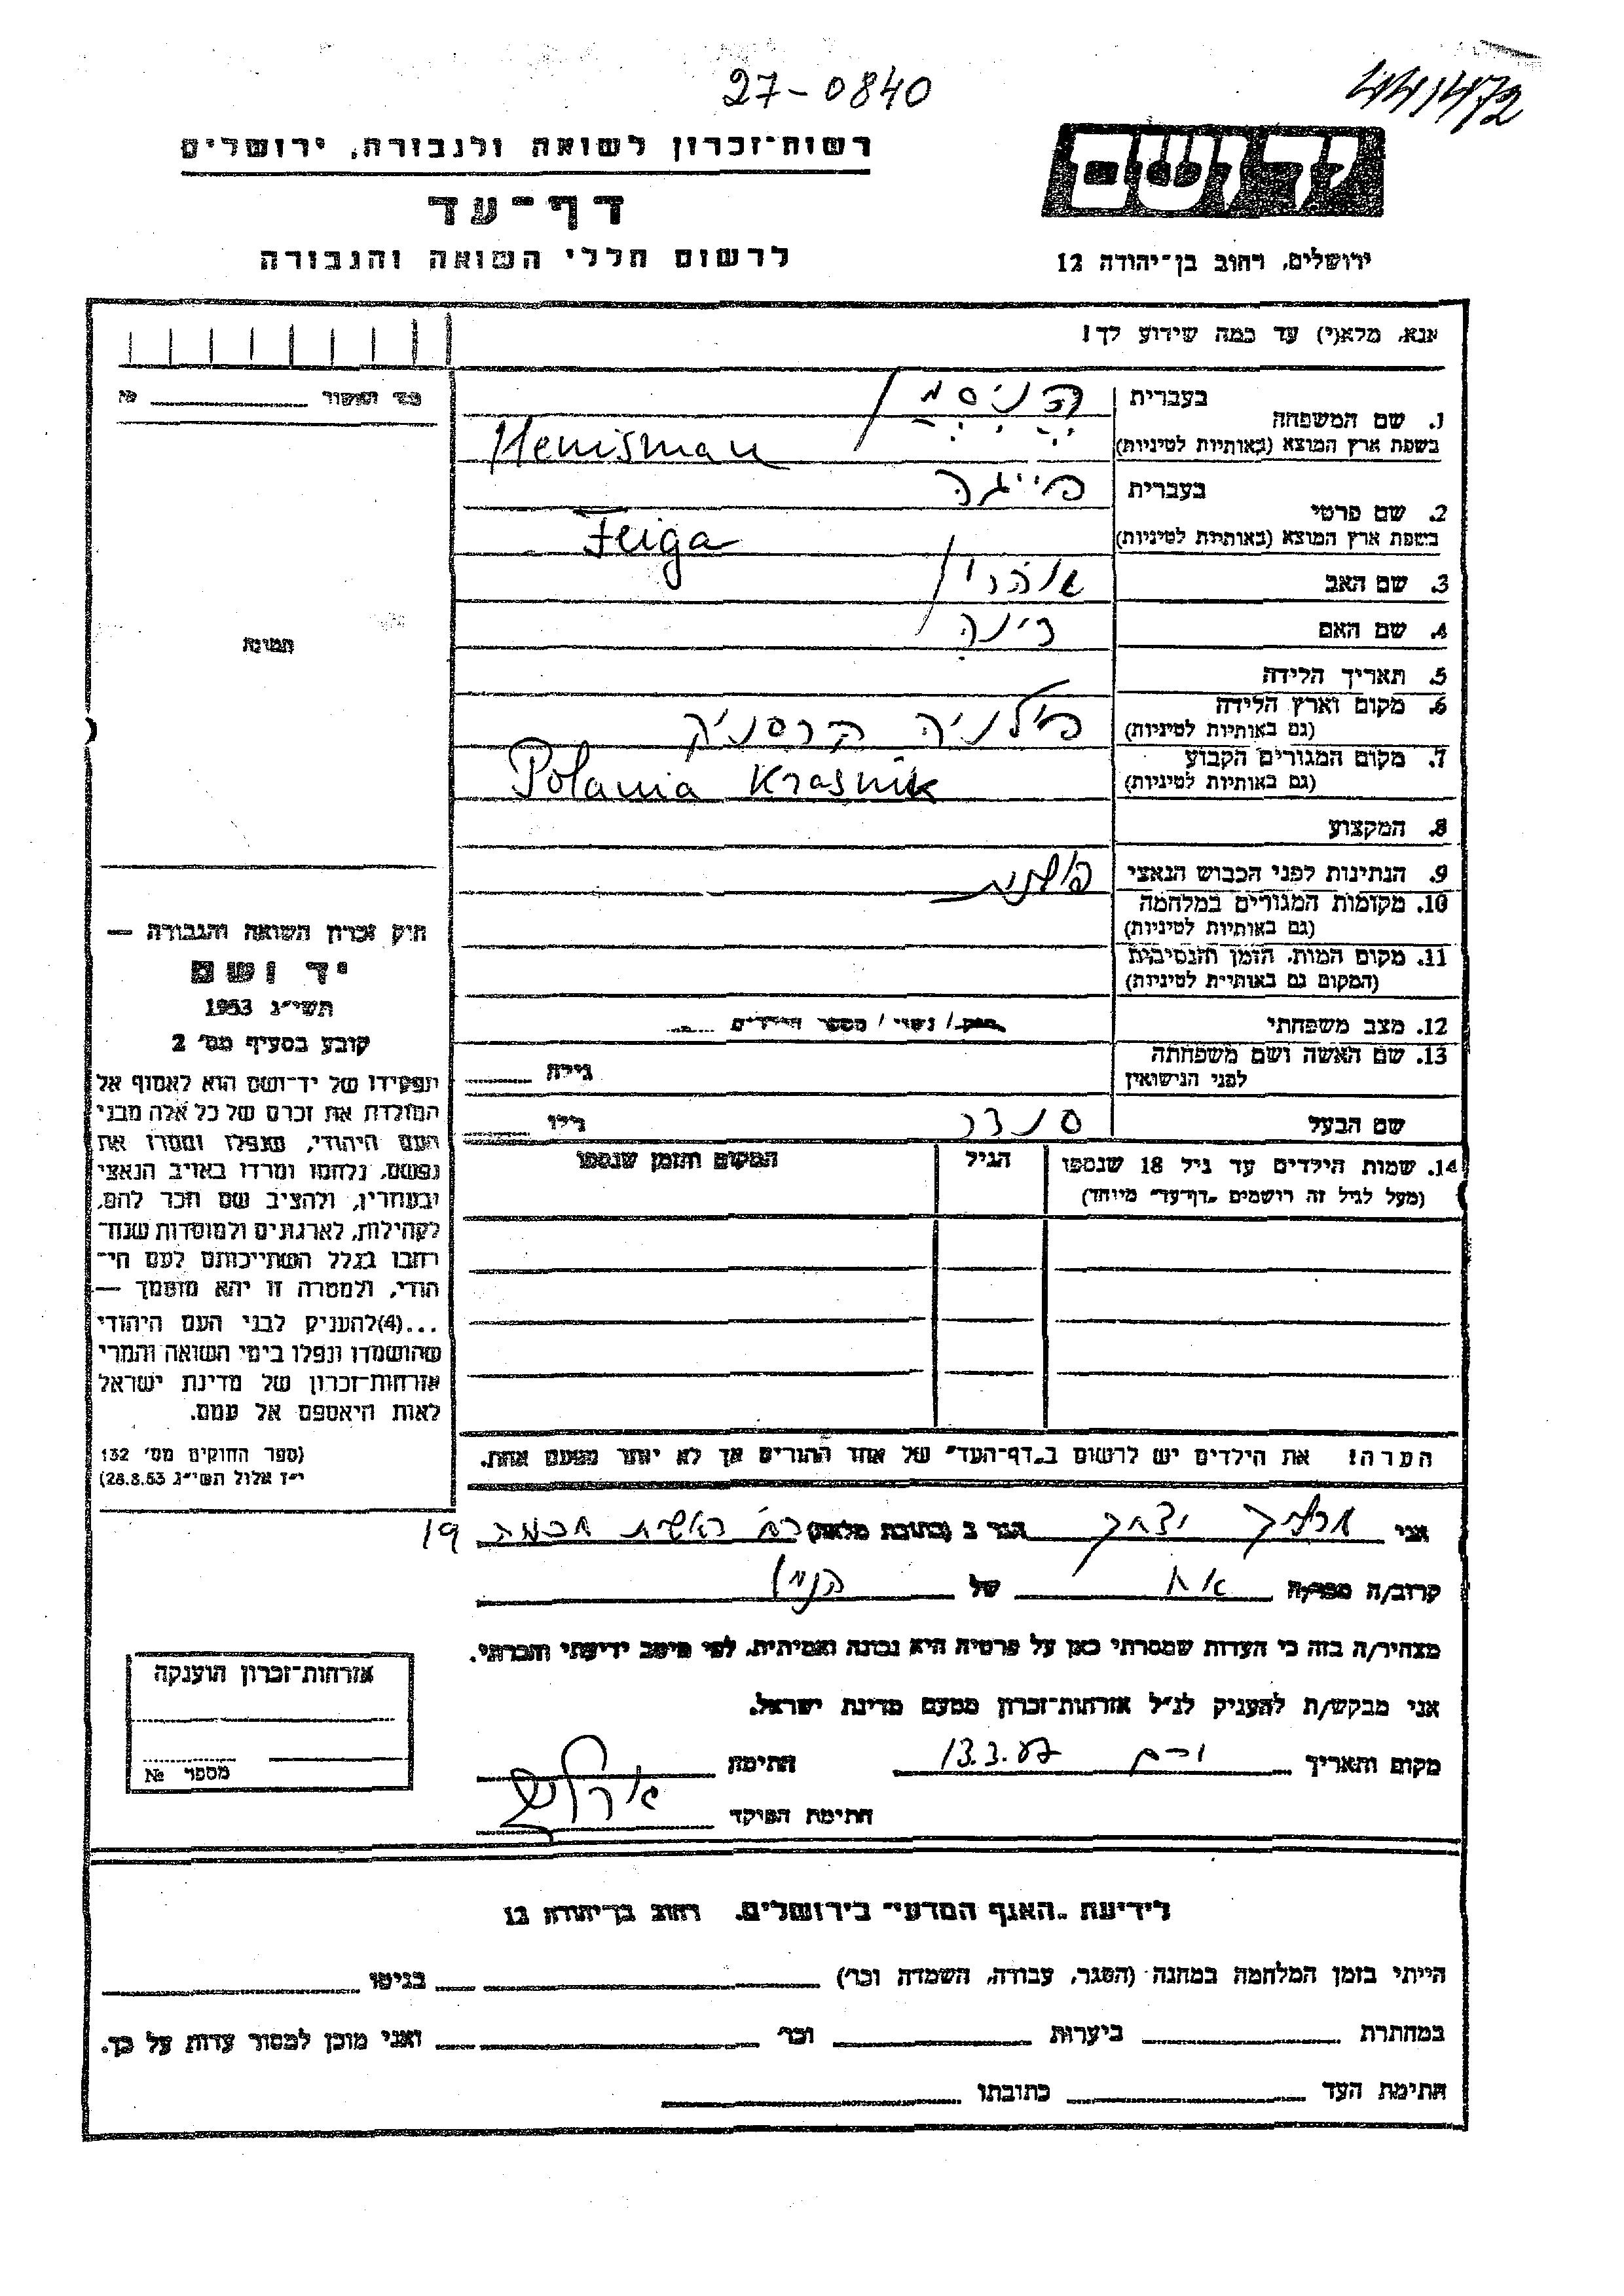 27-0840
441472
רשות־זכרון לשואה ולגבורה, ירושלים
יד ושם
דף־עד
לרשום חללי השואה והגבורה
ירושלים, רחוב בן־יהודה 12
אנא, מלא(י) עד כמה שידוע לך!
פרי האשור №
1. שם המשפחה בעברית הניסמן
בשפת ארץ המוצא (באותיות לטיניות) Henisman
2. שם פרטי בעברית פייגה
בשפת ארץ המוצא (באותיות לטיניות) Feiga
3. שם האב אהרון
4. שם האם דינה
תמונה
5. תאריך הלידה
6. מקום וארץ הלידה
(גם באותיות לטיניות) פולניה קרסניק
7. מקום המגורים הקבוע
(גם באותיות לטיניות) Polania Krasnik
8. המקצוע
9. הנתינות לפני הכבוש הנאצי פולנית
10. מקומות המגורים במלחמה
(גם באותיות לטיניות)
11. מקום המות, הזמן והנסיבות
(המקום גם באותיות לטיניות)
12. מצב משפחתי רוק/ נשוי/ מספר הילדים
13. שם האשה ושם משפחתה
לפני הנישואין גילה
שם הבעל סנדר גילו
14. שמות הילדים עד גיל 18 שנספו הגיל המקום והזמן שנספו
(מעל לגיל זה רושמים „דף־עד” מיוחד)
חוק זכרון השואה והגבורה —
יד ושם
תשי״ג 1953
קובע בסעיף מס׳ 2
תפקידו של יד־ושם הוא לאסוף אל
המולדת את זכרם של כל אלה מבני
העם היהודי, שנפלו ומסרו את
נפשם, נלחמו ומרדו באויב הנאצי
ובעוזריו, ולהציב שם וזכר להם,
לקהילות, לארגונים ולמוסדות שנח־
רבו בגלל השתייכותם לעם הי־
הודי, ולמטרה זו יהא מוסמך —
...(4)להעניק לבני העם היהודי
שהושמדו ונפלו בימי השואה והמרי
אזרחות־זכרון של מדינת ישראל
לאות היאספם אל עמם.
(ספר החוקים מס׳ 132
י״ז אלול תשי״ג 28.8.53)
הערה! את הילדים יש לרשום ב„דף־העד” של אחד ההורים אך לא יותר מפעם אחת.
אני יצחק הגר ב (כתובת מלאה) רח׳ ראשית חכמה 19
קרוב/ה מפר/ה אח של הנ״ל
מצהיר/ה בזה כי העדות שמסרתי כאן על פרטיה היא נכונה ואמיתית, לפי מיטב ידיעתי והכרתי.
אני מבקש/ת להעניק לנ״ל אזרחות־זכרון מטעם מדינת ישראל.
מקום ותאריך 13.3.87 חתימה
חתימת הפיקד
אזרחות־זכרון הוענקה
מספר №
לידיעת „האגף המדעי” בירושלים, רחוב בן־יהודה 12
הייתי בזמן המלחמה במחנה (הסגר, עבודה, השמדה וכו׳) בגיטו
במחתרת ביערות וכו׳ ואני מוכן למסור עדות על כך.
חתימת העד כתובתו